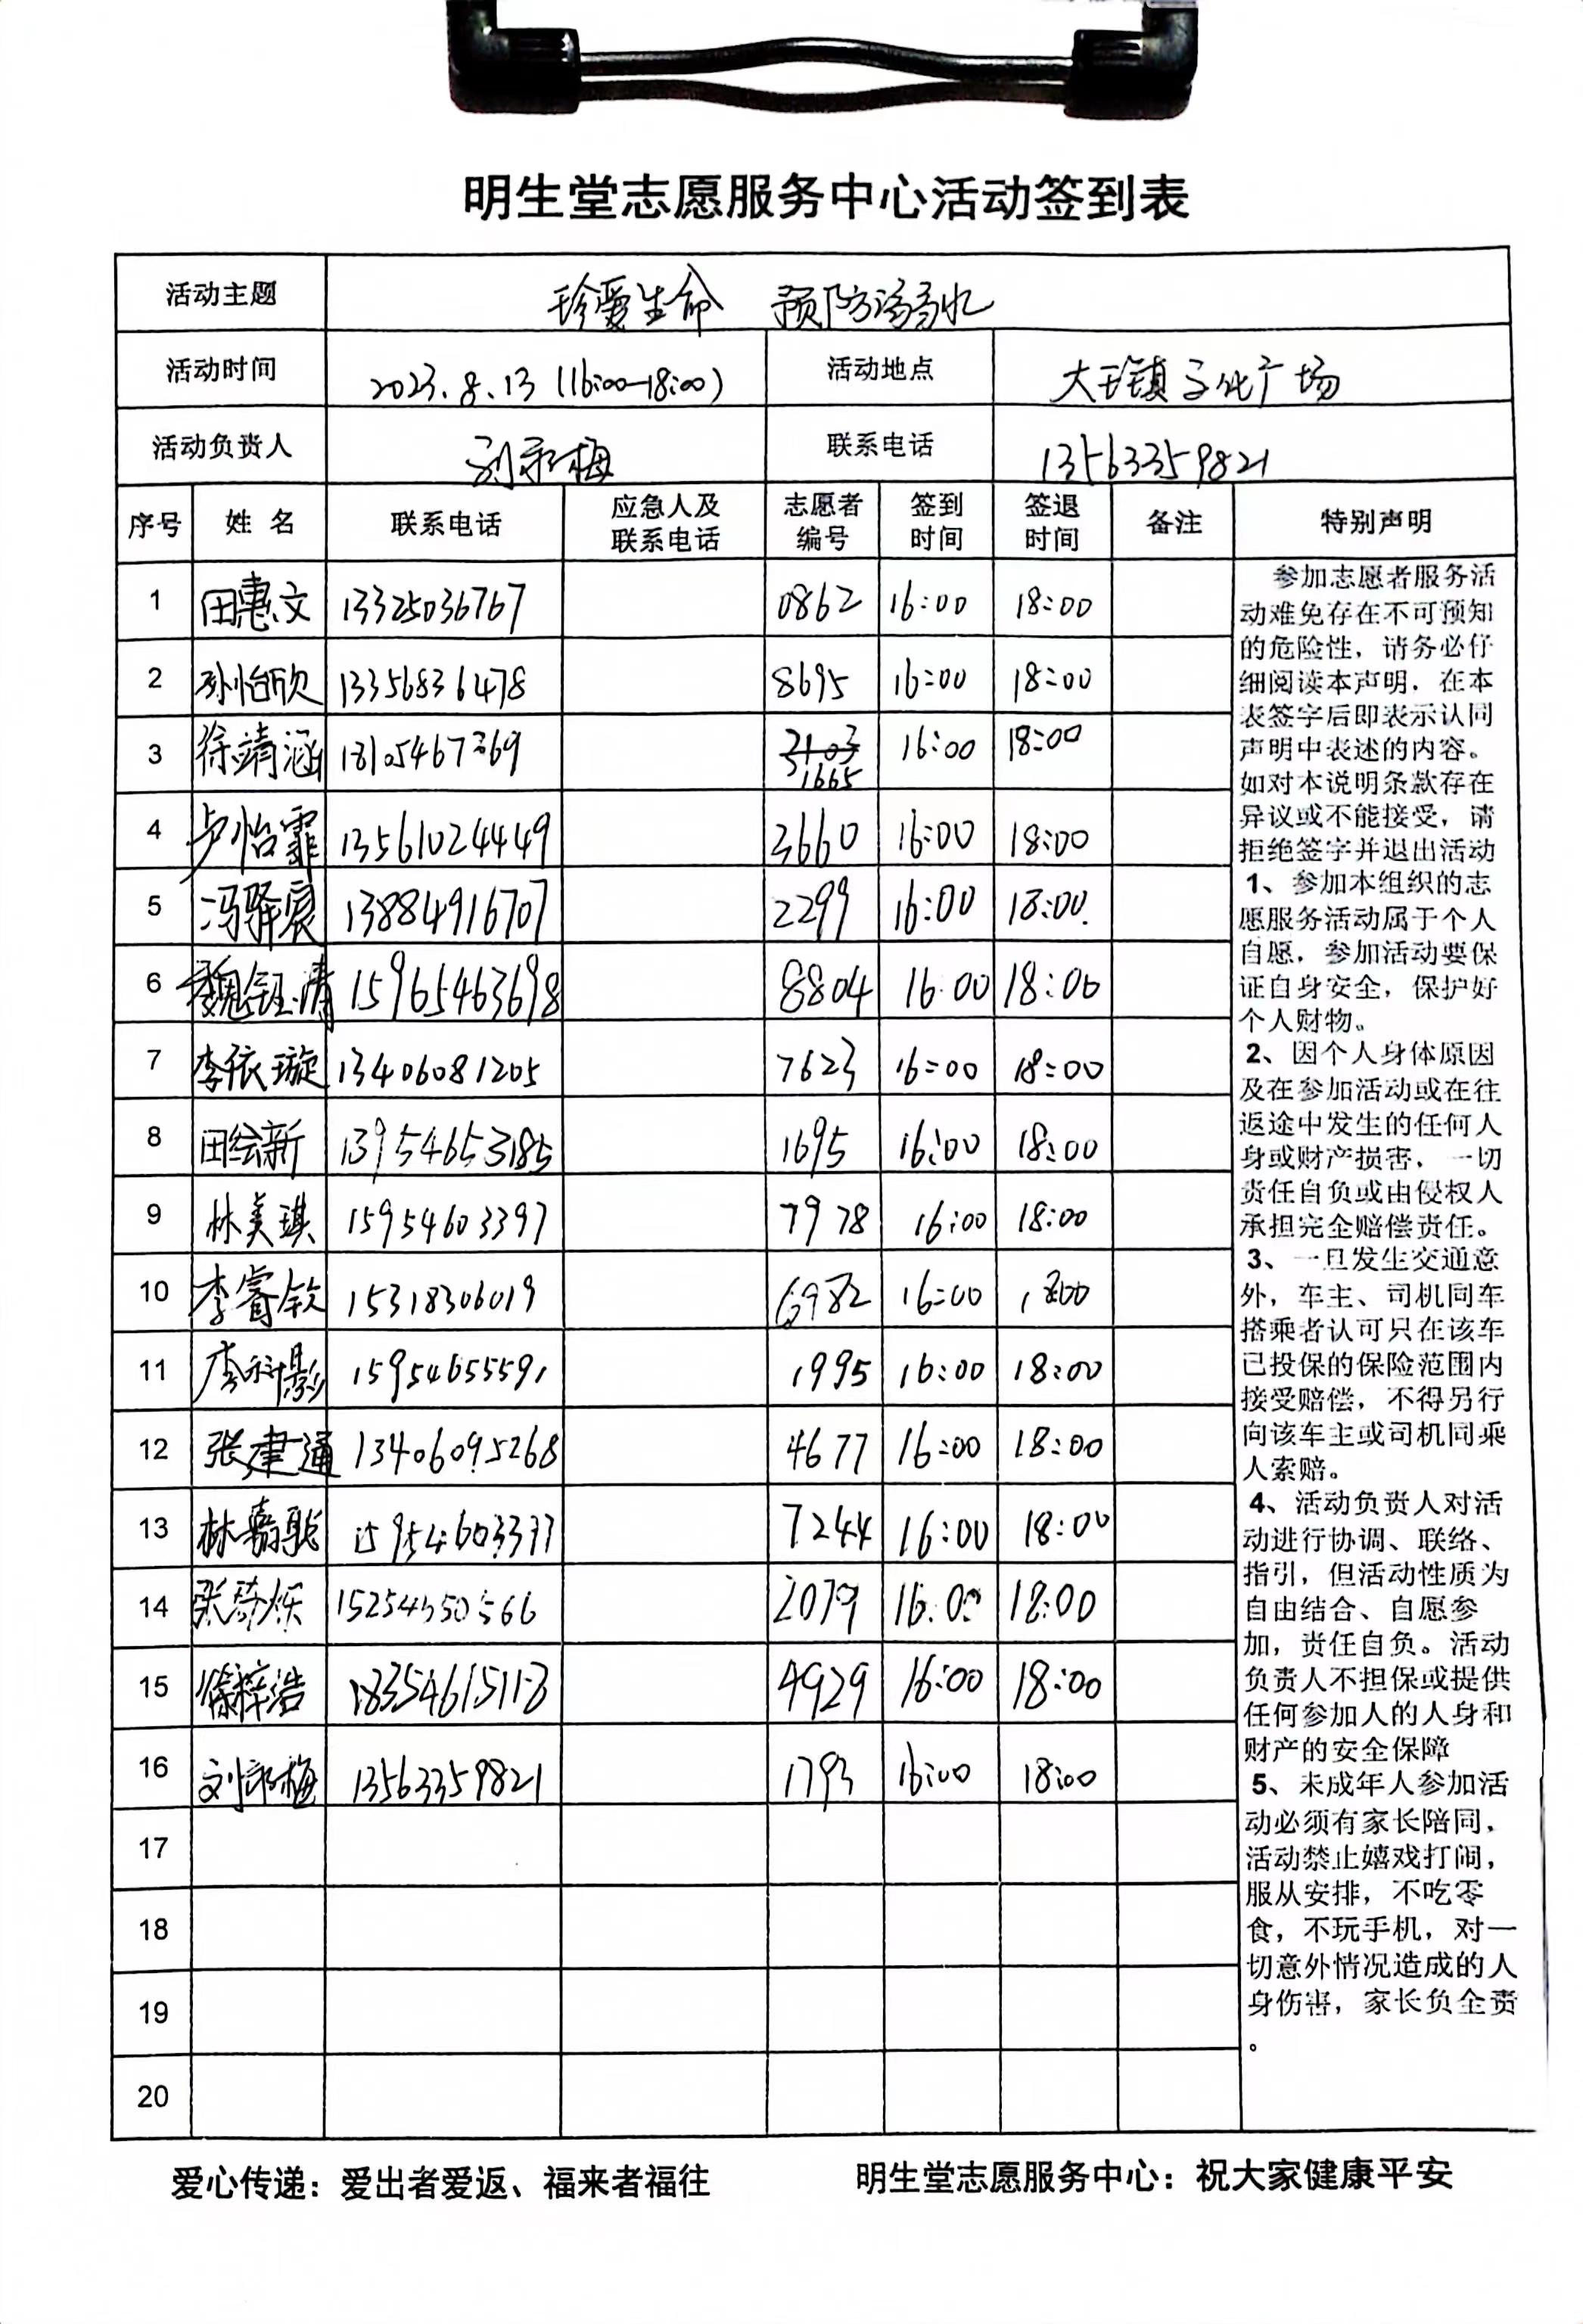 明生堂志愿服务中心活动签到表
活动主题 珍爱生命 预防溺水
活动时间 2023.8.13 (16:00-18:00) 活动地点 大王镇文化广场
活动负责人 联系电话 13563359821
序号 姓名 联系电话 应急人及联系电话 志愿者编号 签到时间 签退时间 备注 特别声明
1 田惠文 13325036767 0862 16:00 18:00
2 孙怡欣 13356836478 8695 16:00 18:00
3 徐靖涵 18105467369 1665 16:00 18:00
4 卢怡霏 13561024449 3660 16:00 18:00
5 冯驿宸 13884916707 2299 16:00 18:00
6 魏钰清 15965463698 8804 16:00 18:00
7 李依璇 13406081205 7623 16:00 18:00
8 田绘新 13954653185 1695 16:00 18:00
9 林美琪 15954603397 7978 16:00 18:00
10 李睿钦 15318306019 6982 16:00 1800
11 15954655591 1995 16:00 18:00
12 张建通 13406095268 4677 16:00 18:00
13 7244 16:00 18:00
14 2079 16:00 18:00
15 徐梓浩 18354615113 4929 16:00 18:00
16 13563359821 1793 16:00 18:00
17
18
19
20
参加志愿者服务活
动难免存在不可预知
的危险性，请务必仔
细阅读本声明．在本
表签字后即表示认同
声明中表述的内容。
如对本说明条款存在
异议或不能接受，请
拒绝签字并退出活动
1、参加本组织的志
愿服务活动属于个人
自愿，参加活动要保
证自身安全，保护好
个人财物。
2、因个人身体原因
及在参加活动或在往
返途中发生的任何人
身或财产损害，一切
责任自负或由侵权人
承担完全赔偿责任。
3、一旦发生交通意
外，车主、司机同车
搭乘者认可只在该车
已投保的保险范围内
接受赔偿，不得另行
向该车主或司机同乘
人索赔。
4、活动负责人对活
动进行协调、联络、
指引，但活动性质为
自由结合、自愿参
加，责任自负。活动
负责人不担保或提供
任何参加人的人身和
财产的安全保障
5、未成年人参加活
动必须有家长陪同，
活动禁止嬉戏打闹，
服从安排，不吃零
食，不玩手机，对一
切意外情况造成的人
身伤害，家长负全责
。
爱心传递：爱出者爱返、福来者福往 明生堂志愿服务中心：祝大家健康平安